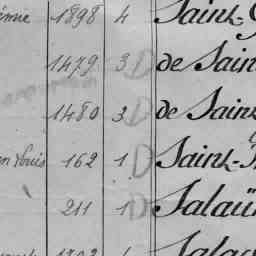 1898 4 Saint-
1479 3 D de Sain
1480 3 D de Sain
Louis 162 1 D Saint-
211 1 D Salaü